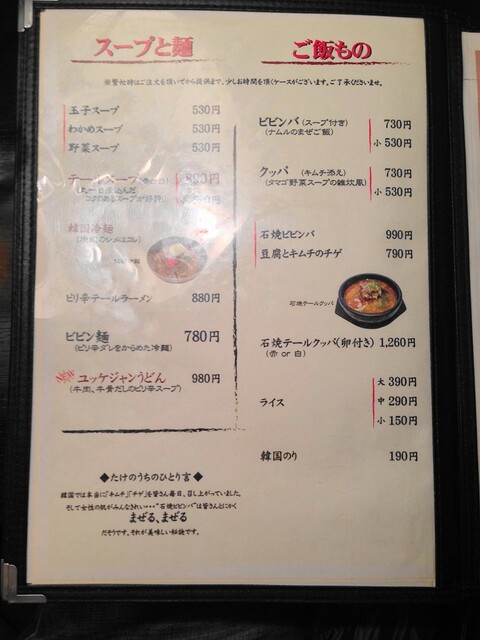 スープと麺
ご飯もの
※繁忙時はご注文を頂いてから提供まで、少しお時間を頂くケースがございます。ご了承くださいませ。
玉子スープ 530円
わかめスープ 530円
野菜スープ 530円
テールスープ
韓国冷麺
ピリ辛テールラーメン 880円
ビビン麺 780円
(ピリ辛ダレをからめた冷麺)
ユッケジャンうどん 980円
(牛肉、牛骨だしのピリ辛スープ)
◆たけのうちのひとり言◆
韓国では本当に「キムチ」「チゲ」を皆さん毎日、召し上がっていました。
そして女性の肌がみんなきれい・・・"石焼ビビンバ"は皆さんとにかく
まぜる、まぜる
だそうです。それが美味しい秘訣です。
ビビンバ(スープ付き) 730円
(ナムルのまぜご飯) 小 530円
クッパ (キムチ添え) 730円
(タマゴ野菜スープの雑炊風) 小 530円
石焼ビビンバ 990円
豆腐とキムチのチゲ 790円
石焼テールクッパ
石焼テールクッパ(卵付き) 1,260円
(赤 or 白)
ライス
大 390円
中 290円
小 150円
韓国のり 190円